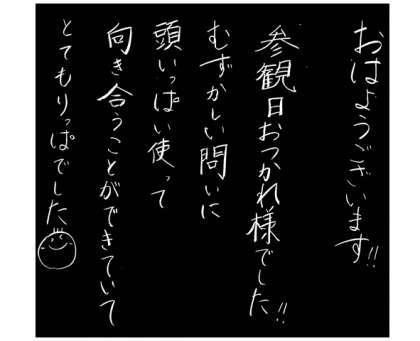 おはようございます!!
参観日おつかれ様でした!!
むずかしい問いに
頭いっぱい使って
向き合うことができていて
とてもりっぱでした